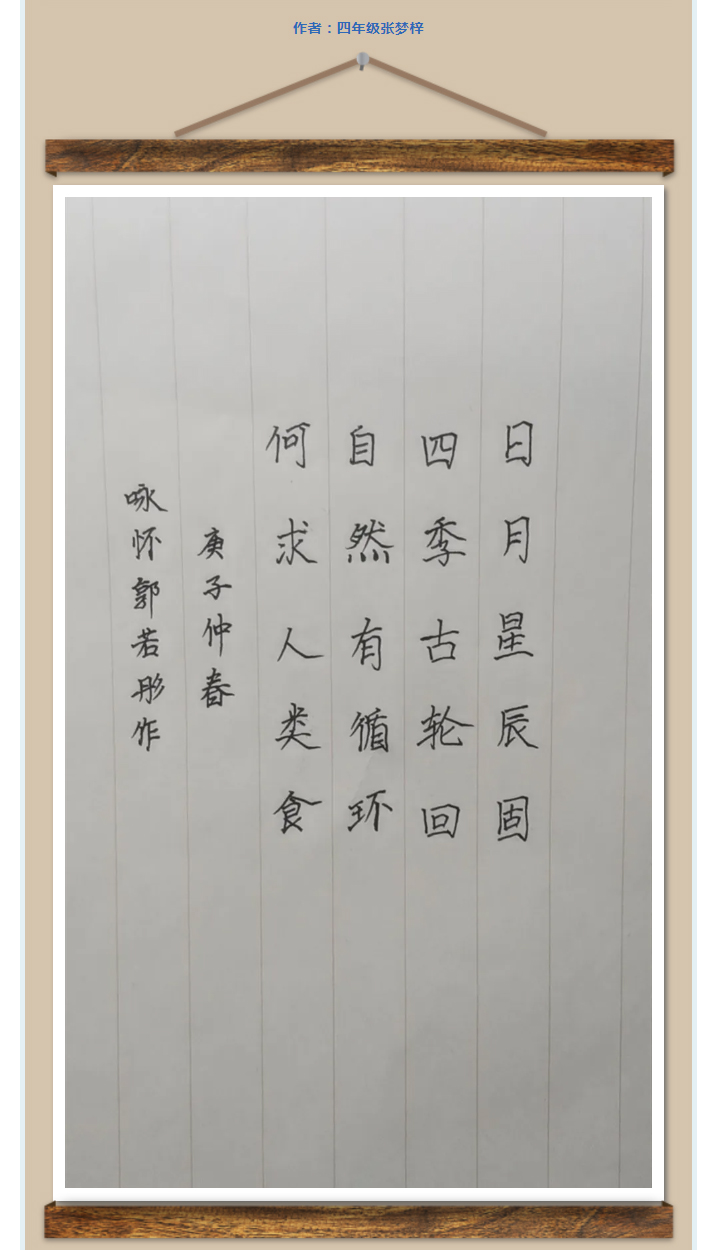 作者：四年级张梦梓
日月星辰固
四季古轮回
自然有循环
何求人类食
庚子仲春
咏怀郭若彤作